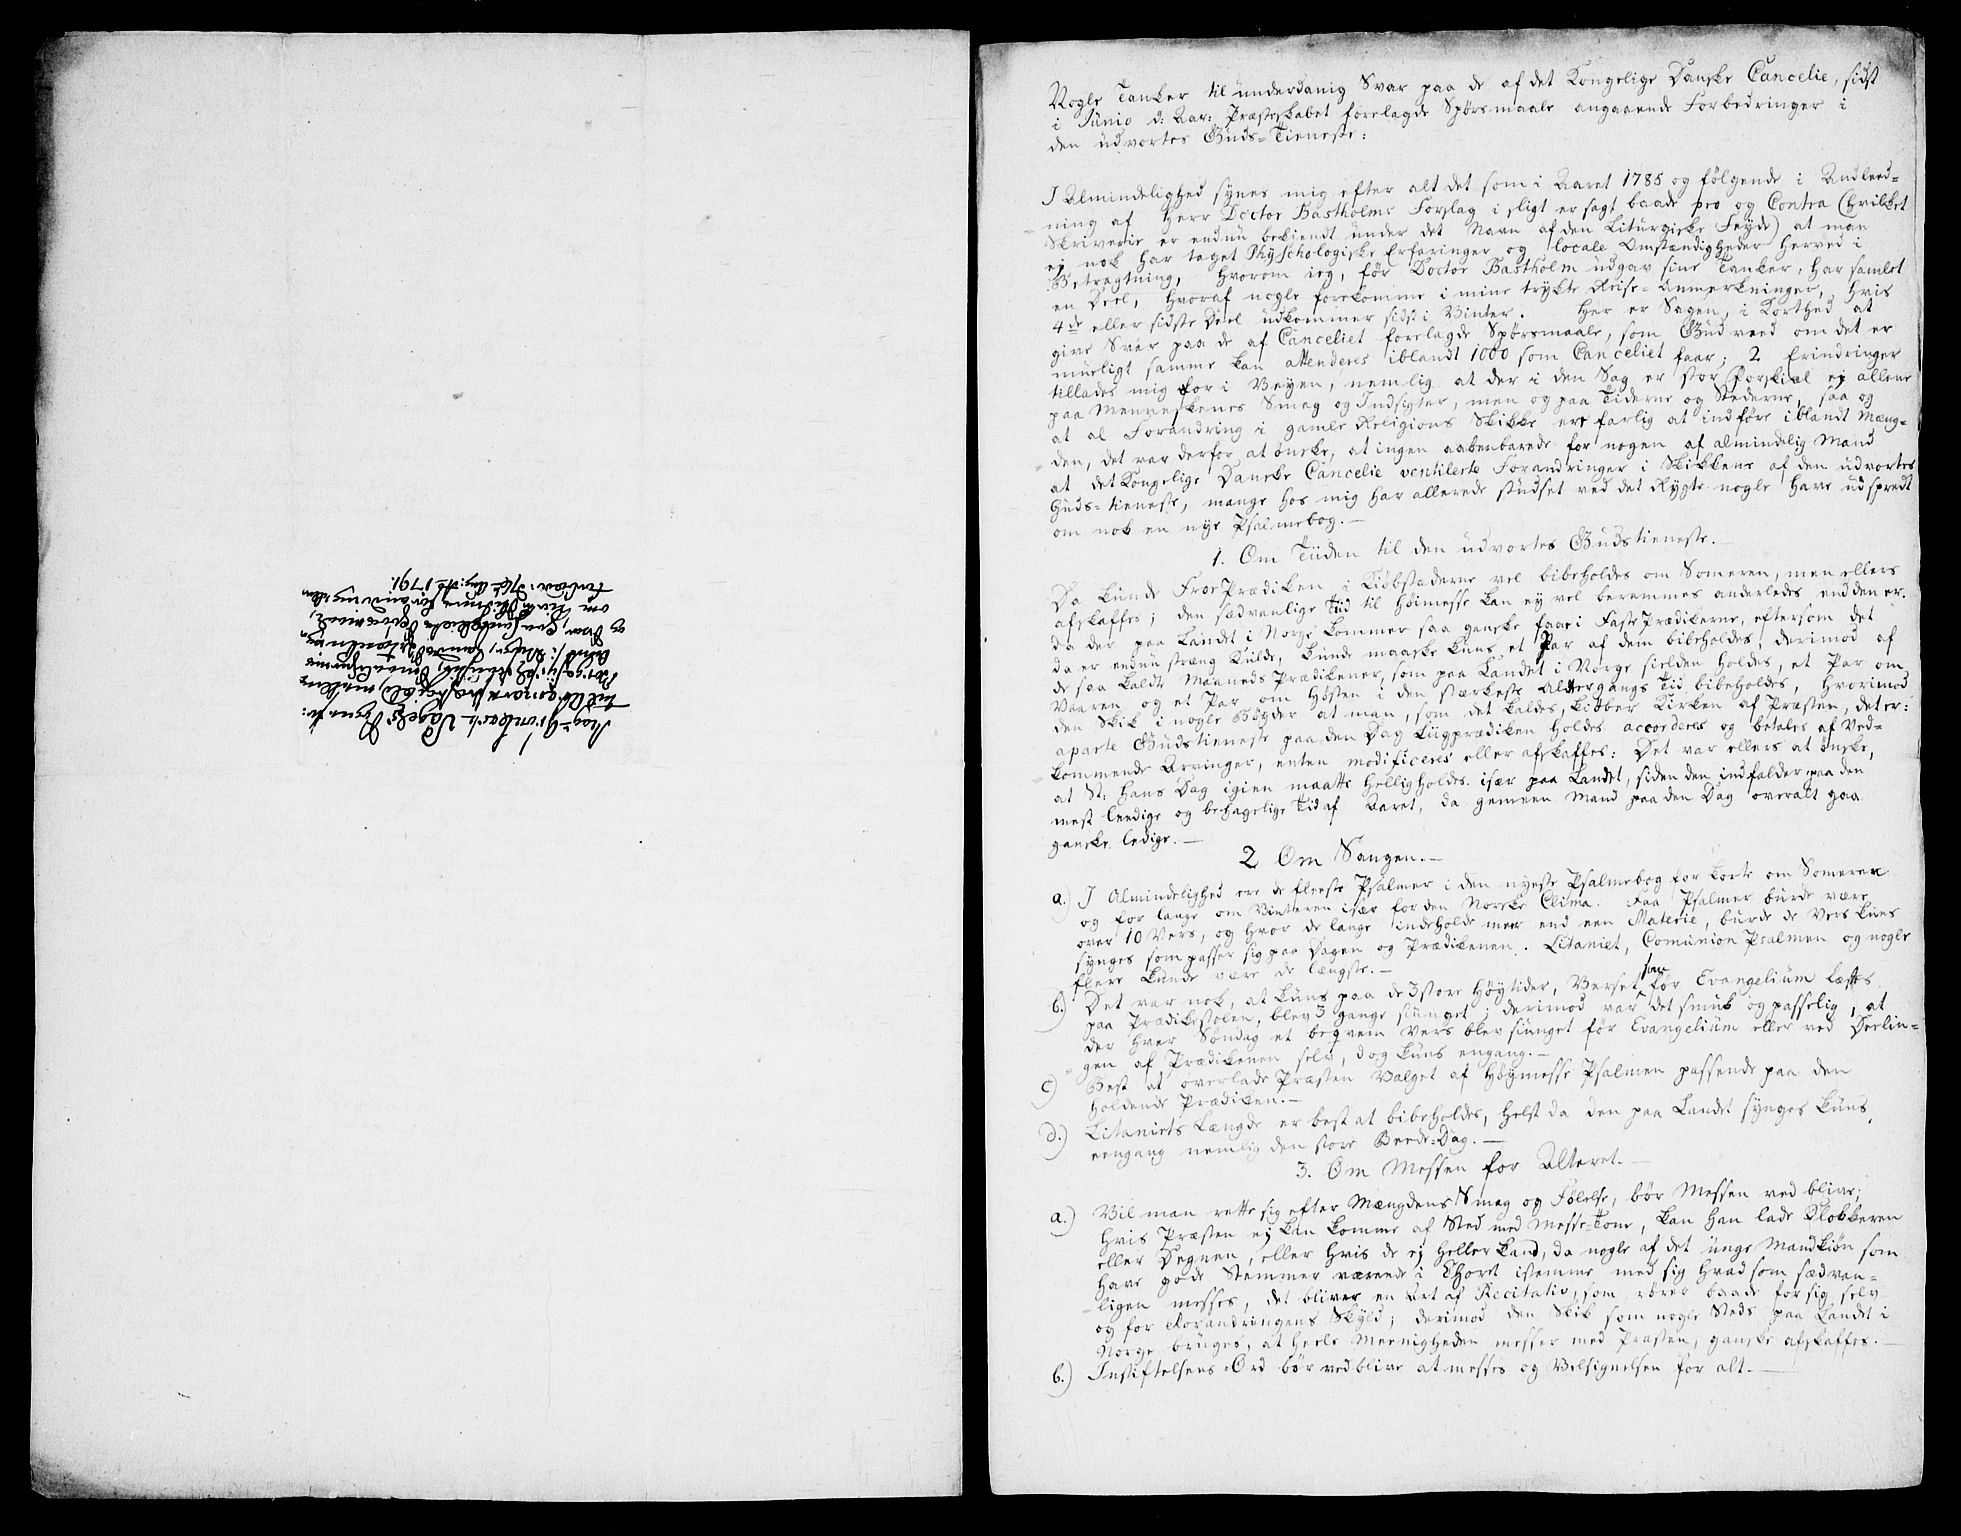 Nogle Tanker til underdanig Svar paa de af det Kongelige Danske Cancelie, sidst
i Junio d: Aar: Præsteskabet forelagde Spørsmaale angaaende Forbedringer i
den udvortes Guds-Tieneste:
I Almindelighed synes mig efter alt det som i Aaret 1785 og følgende i Andleed-
ning af Herr Doctor Bastholms Forslag i sligt er sagt baade pro og Contra (hvilket
Skriverie er endnu bekiendt under det Navn af den Liturgiske Feyde) at man
ej nok har taget Physchologiske Erfaringer og locale Omstændigheder herved i
Betragtning, hvorom jeg, før Doctor Bastholm udgav sine Tanker, har samlet
en Deel, hvoraf nogle forekomme i mine trykte Reise-Anmerkninger, hvis
4de eller sidste Deel udkommer sidst i Vinter. Her er Sagen, i Korthed at
give Svar paa de af Canceliet forelagde Spørsmaale, som Gud veed om det er
mueligt samme kan attenderes iblandt 1000 som Canceliet faar; 2 Erindringer
tillades mig for i Veyen, nemlig at der i den Sag er stor Forskiæl ej allene
paa Menneskenes Smag og Indsigter, men og paa Tiderne og Stederne, saa og
at al Forandring i gamle Religions Skikke er farlig at indføre iblandt Mæng-
den, det var derfor at ønske, at ingen aabenbarede for nogen af almindelig Mand
at det Kongelige Danske Cancelie ventilerte Forandringer i Skikkene af den udvortes
Guds-tieneste, mange hos mig har allerede studset ved det Rygte nogle have udspredt
om nok en nye Psalmebog.—
1. Om Tiiden til den udvortes Gudstieneste.—
Da kunde Froe Prædiken i Kiøbstæderne vel bibeholdes om Someren, men ellers
afskaffes; den sædvanlige Tid til Høimesse kan ey vel berammes anderledes end den er.
da der paa Landet i Norge kommer saa ganske faae i Faste Prædikerne, eftersom det
da er endnu stræng Kulde, kunde maaske kuns et Par af dem bibeholdes, derimod af
de saa kaldte Maaneds Prædikener, som paa Landet i Norge sielden holdes, et Par om
Vaaren og et Par om Høsten i den stærkeste Altergangs Tid bibeholdes, hvorimod
den Skik i nogle Bøyder at man, som det kaldes, kiøber Kirken af Præsten, det er:
aparte Gudstieneste paa den Dag Liigprædiken holdes accorderes og betales af Ved-
kommende Arvinger, enten modificeres eller afskaffes: Det var ellers at ønske,
at St: Hans Dag igien maatte helligholdes. især paa Landet, siden den indfalder paa den
mest leedige og behagelige Tid af Aaret, da gemeen Mand paa den Dag overalt gaa
ganske ledige.—
2 Om Sangen.—
a.) I Almindelighed ere de fleeste Psalmer i den nyeste Psalmebog for korte om Someren
og for lange om Vinteren især for den Norske Clima. Faa Psalmer burde være
over 10 Vers, og hvor de lange indeholde meer end een Materie, burde de Vers kuns
synges som passer sig paa Dagen og Prædikenen. Litaniet, Comunion Psalmen og nogle
flere kunde være de længste.—
b.) Det var nok, at kuns paa de 3 store Høytider, Verset som før Evangelium læses
paa Prædikestolen, blev 3 gange siunget; derimod var det smuk og passelig, at
der hver Søndag et beqvem Vers blev siunget før Evangelium eller ved Deelin-
gen af Prædikenen selv, dog kuns engang.—
c) Best at overlade Præsten Valget af Høymesse Psalmen passende paa den
holdende Prædiken.—
d.) Litaniets Længde er best at bibeholdes, helst da den paa Landet synges kuns
eengang nemlig den store Beede-Dag.—
3. Om Messen for Alteret.—
a.) Vil man rette sig efter Mængdens Smag og Følelse, bør Messen ved blive;
hvis Præsten ej kan komme af Sted med Messe-Tone, kan han lade Klokkeren
eller Degnen, eller hvis de ej heller kand, da nogle af det unge Mandkiøn som
have gode Stemmer værende i Choret istemme med sig hvad som sædvan-
ligen messes, det bliver en Art af Recitativ, som rører baade for sig selv
og for Forandringens Skyld; derimod den Skik som nogle Steds paa Landet i
Norge bruges, at heele Meenigheden messer med Præsten, ganske afskaffes.—
b.) Instiftelsens Ord bør ved blive at messes og Velsignelsen for alt.—